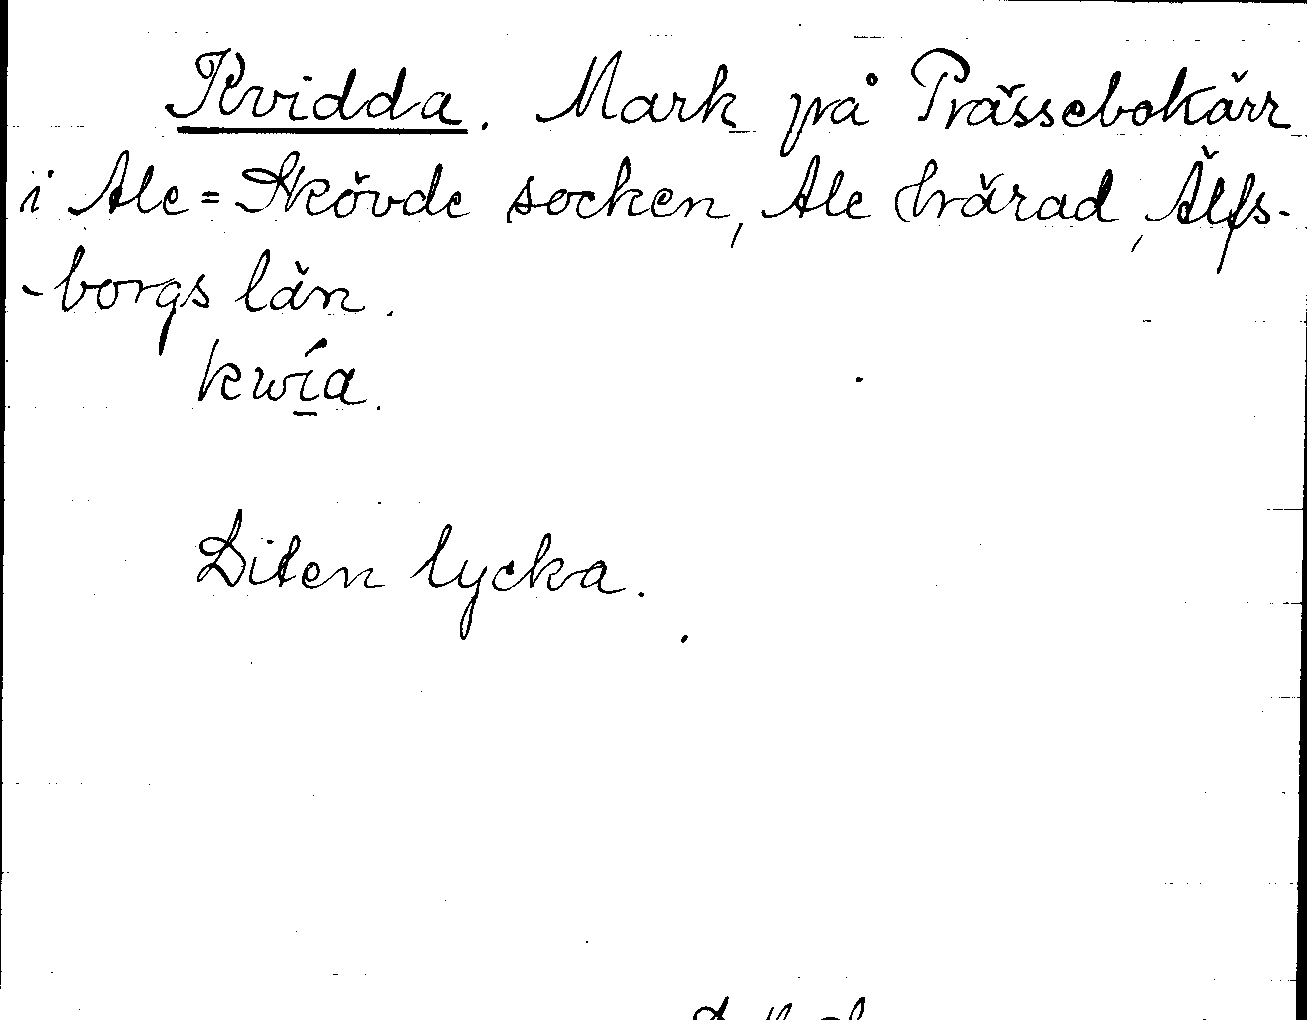 Kvidda. Mark på Prässebokärr
i Ale=Skövde socken, Ale härad, Älfs-
-borgs län.
kwía.
Liten lycka.